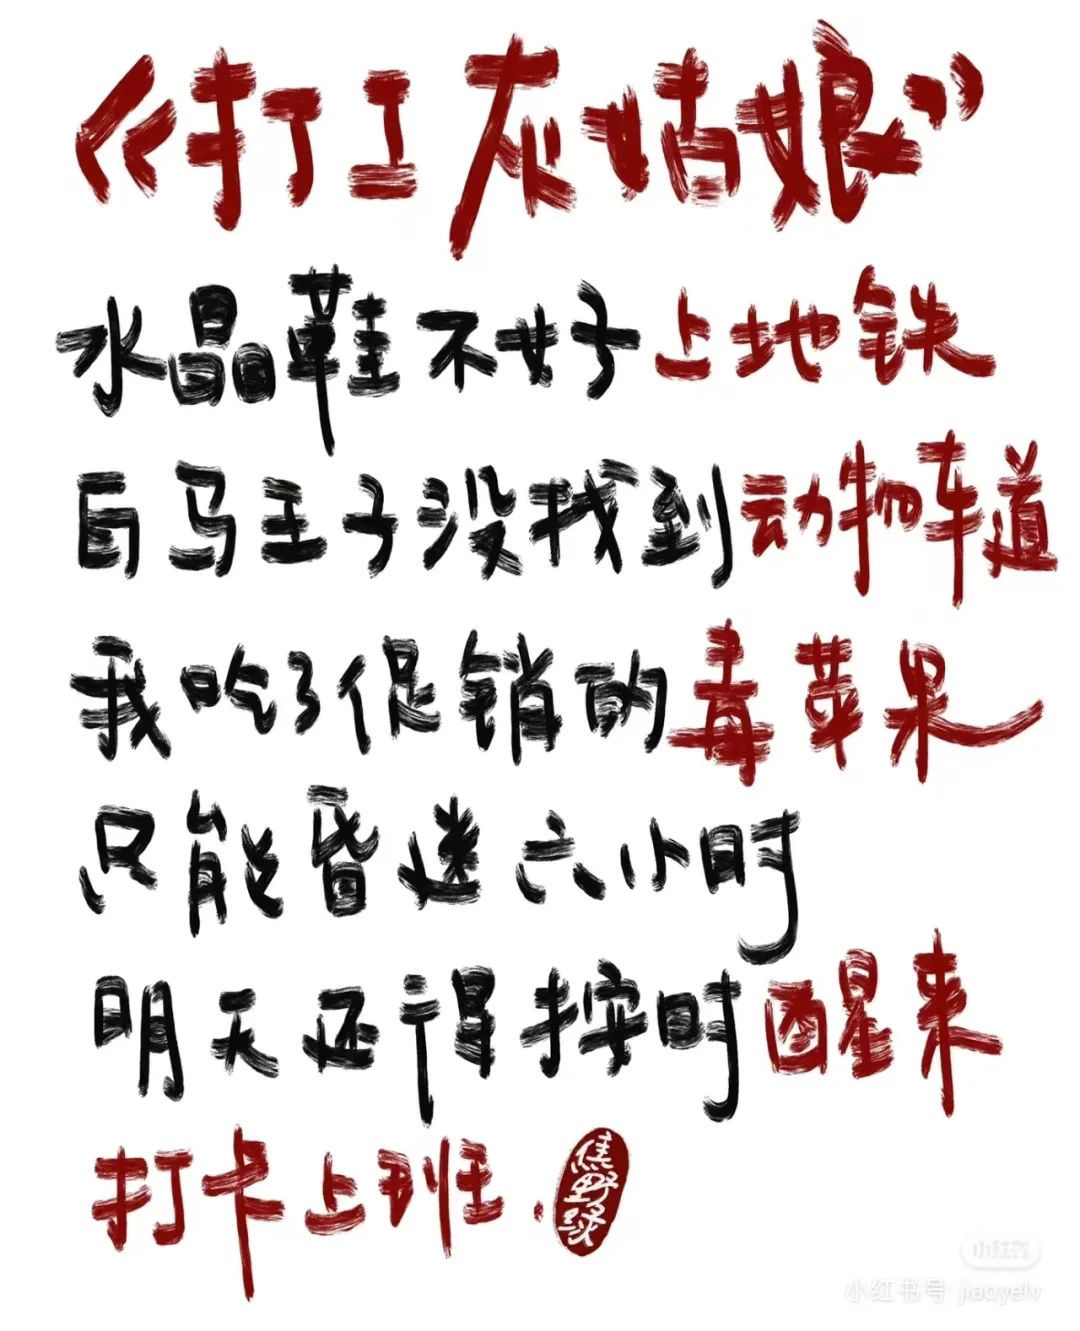 《打工灰姑娘》
水晶鞋不好上地铁
白马王子没找到动物车道
我吃了促销的毒苹果
只能昏迷六小时
明天还得按时醒来
打卡上班.
焦野绿
小红书
小红书号 jiaoyelv